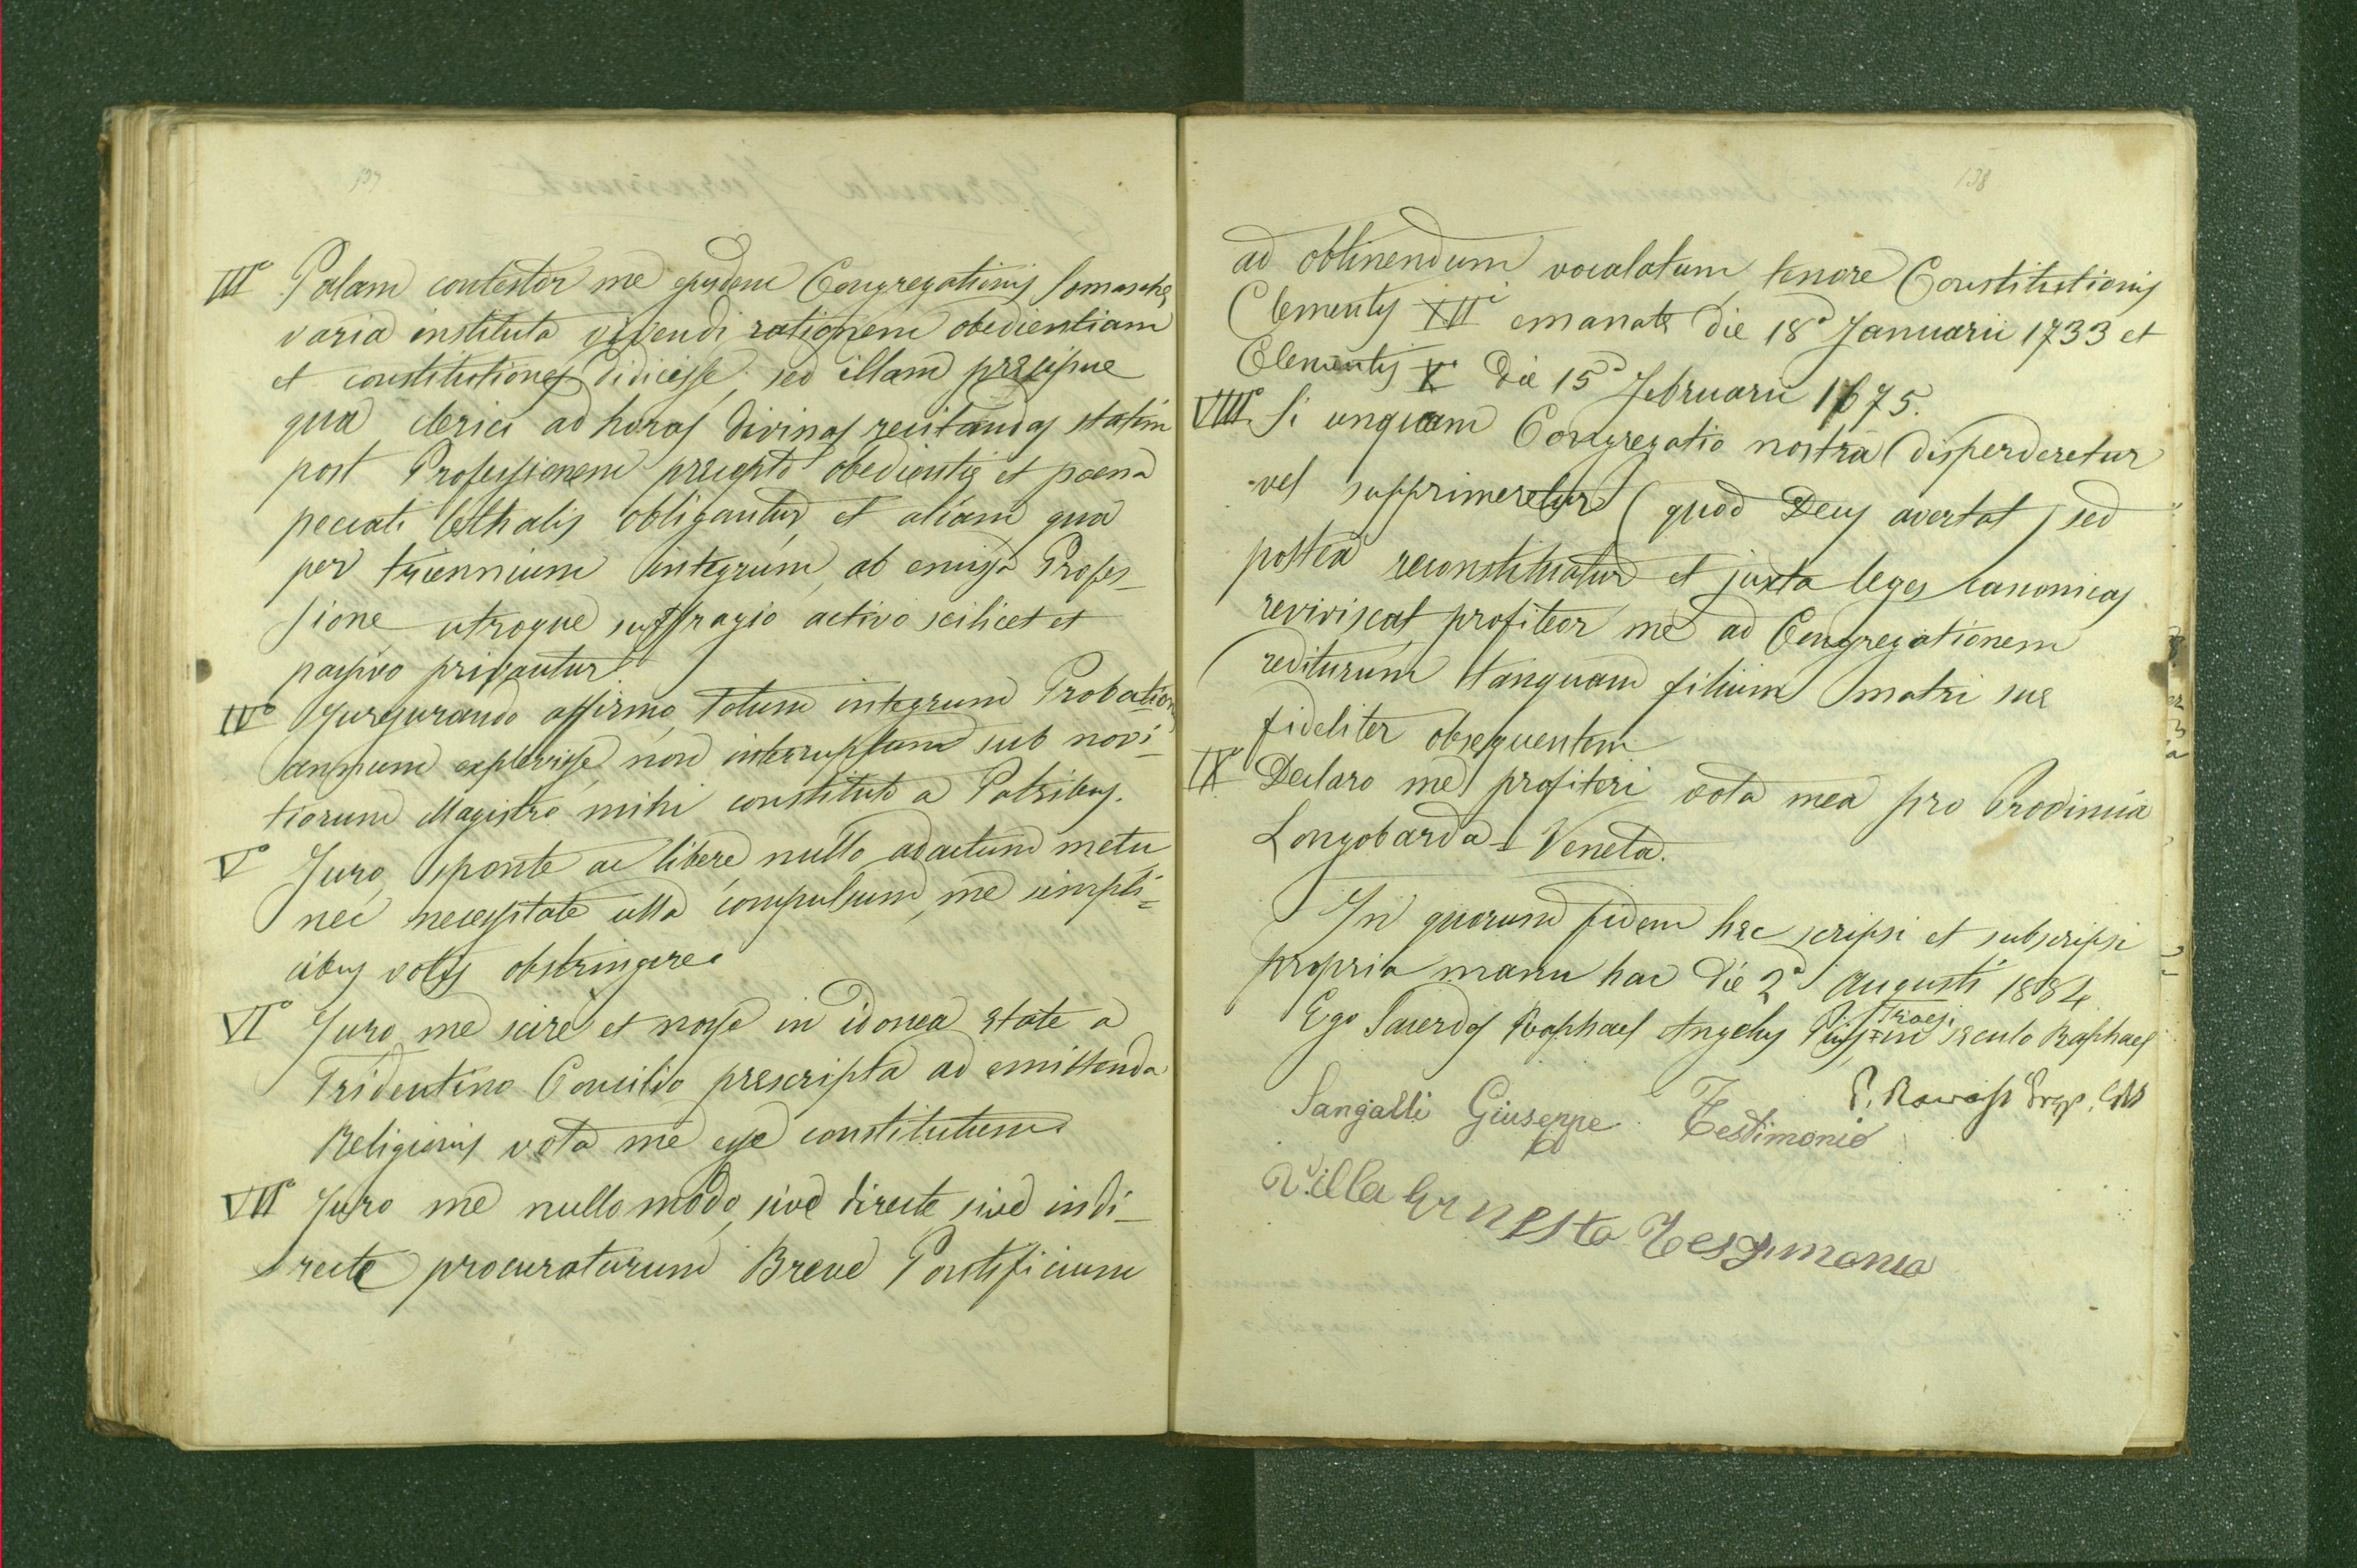 137
IIIº Palam contestor me ejusdem Congregationis Somaschæ
varia instituta vivendi rationem obedientiam
et constitutiones didicisse; sed illam præcipue
qua clerici ad horas divinas recitandas statim
post Professionem præcepto obedientiæ et poena
peccati lethalis obligantur, et aliam qua
per triennium integrum, ab emissa Profes-
sione utroque suffragio activo scilicet et
passivo privantur
IVº Jurejurando affirmo, totum integrum Probationis
annum explevisse, non interruptum sub novi-
tiorum Magistro mihi constituto a Patribus.
Vº Juro, sponte ac libere, nullo adactum metu
nec necessitate ulla compulsum, me simpli=
cibus votis obstringere.
VIº Juro me scire et nosse in idonea ætate a
Tridentino Concilio præscripta ad emittenda
Religionis vota me esse constitutum.
VIIº Juro me nullo modo, sive directe, sive indi-
recte procuraturum Breve Pontificium
138
ad obtinendum vocalatum, tenore Constitutionis
Clementis XIIº emanatæ die 18ª Januarii 1733 et
Clementis Xº die 15ª Februarii 1675.
VIIIº Si unquam Congregatio nostra disperderetur
vel supprimeretur (quod Deus avertat) sed
postea reconstituatur et juxta leges canonicas
reviviscat, profiteor me ad Congregationem
rediturum tanquam filium matri suæ
fideliter obsequentem
IXº Declaro me profiteri vota mea pro Provincia
Longobarda-Veneta.
In quorum fidem hæc scripsi et subscripsi
propria manu hac die 2ª Augusti 1884
Ego Sacerdos Raphael Angelus in sæculo Raphael
Sangalli Giuseppe Testimonio
Villa Ernesto Testimonio